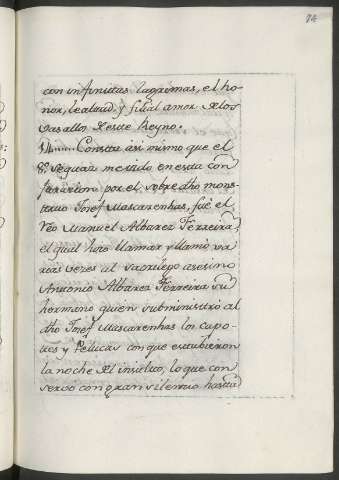 74
con infinitas lagrimas, el ho-
nor, lealtad, y filial amor de los
vasallos de este Reyno.
14 Consta asi mismo que el
8º. seguaz metido en esta con
juracion por el sobre dho mons-
truo Josef Mascarenhas, fué el
reo Manuel Albarez Ferreira,
el qual hizo llamar y llamó va
rias veces al sacrilego asesino
Antonio Albarez Ferreira su
hermano quien subministró al
dho Josef Mascarenhas los capo-
tes y Pelucas con que estubieron
la noche del insulto, lo que con
servo con gran silencio hasta